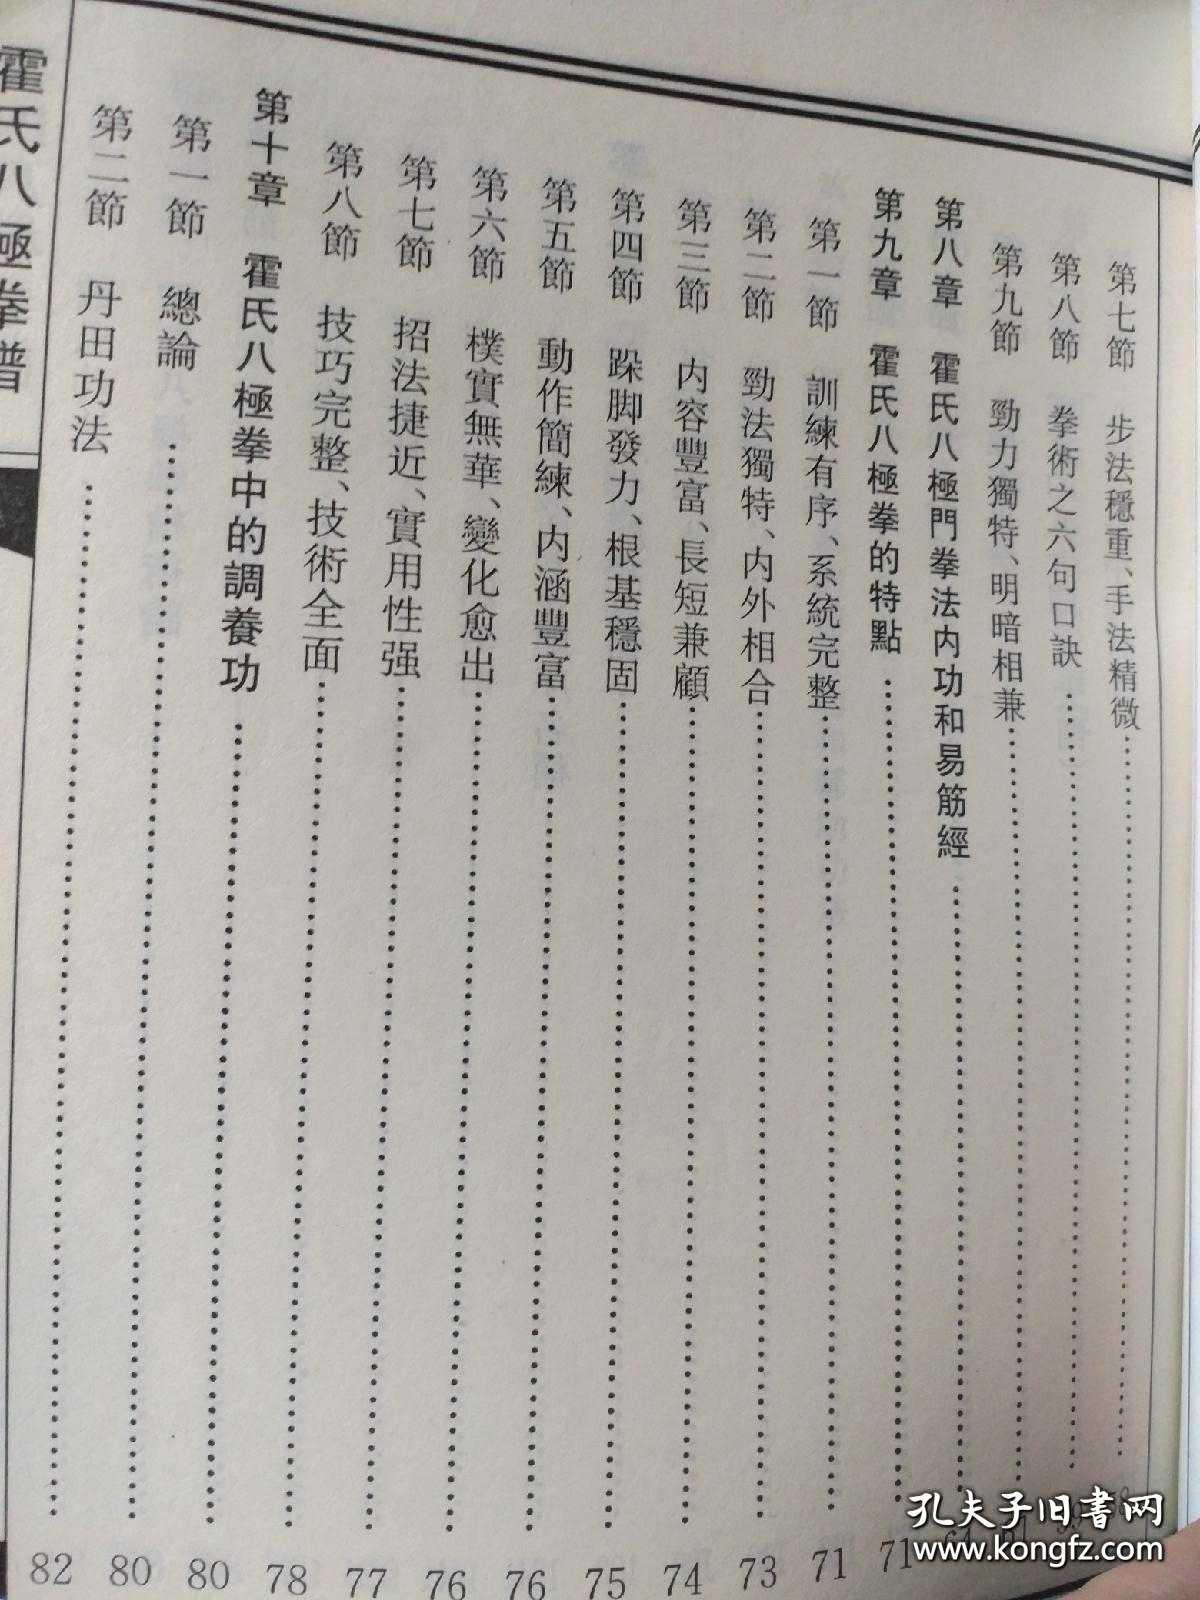 第七節　步法穩重、手法精微
第八節　拳術之六句口訣
第九節　勁力獨特、明暗相兼
第八章　霍氏八極門拳法内功和易筋經
第九章　霍氏八極拳的特點 71
第一節　訓練有序、系統完整 71
第二節　勁法獨特、内外相合 73
第三節　内容豐富、長短兼顧 74
第四節　跺脚發力、根基穩固 75
第五節　動作簡練、内涵豐富 76
第六節　樸實無華、變化愈出 76
第七節　招法捷近、實用性强 77
第八節　技巧完整、技術全面 78
第十章　霍氏八極拳中的調養功 80
第一節　總論 80
第二節　丹田功法 82
霍氏八極拳譜
孔夫子旧书网
www.kongfz.com